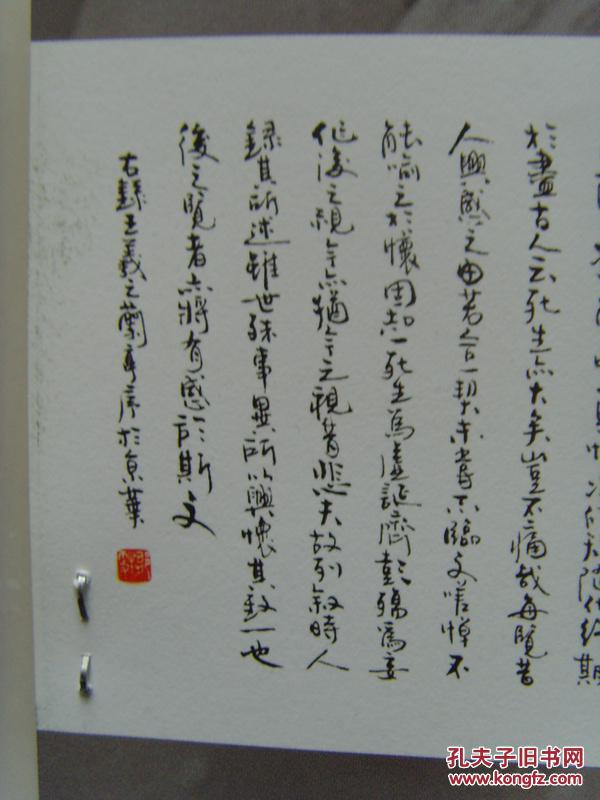 随化终期
於盡古人云死生亦大矣豈不痛哉每覽昔
人興感之由若合一契未嘗不臨文嗟悼不
能喻之於懷固知一死生爲虛誕齊彭殤爲妄
作後之視今亦猶今之視昔悲夫故列敘時人
録其所述雖世殊事異所以興懷其致一也
後之覽者亦將有感於斯文
右録王羲之蘭亭序於京華
孔夫子旧书网
www.kongfz.com